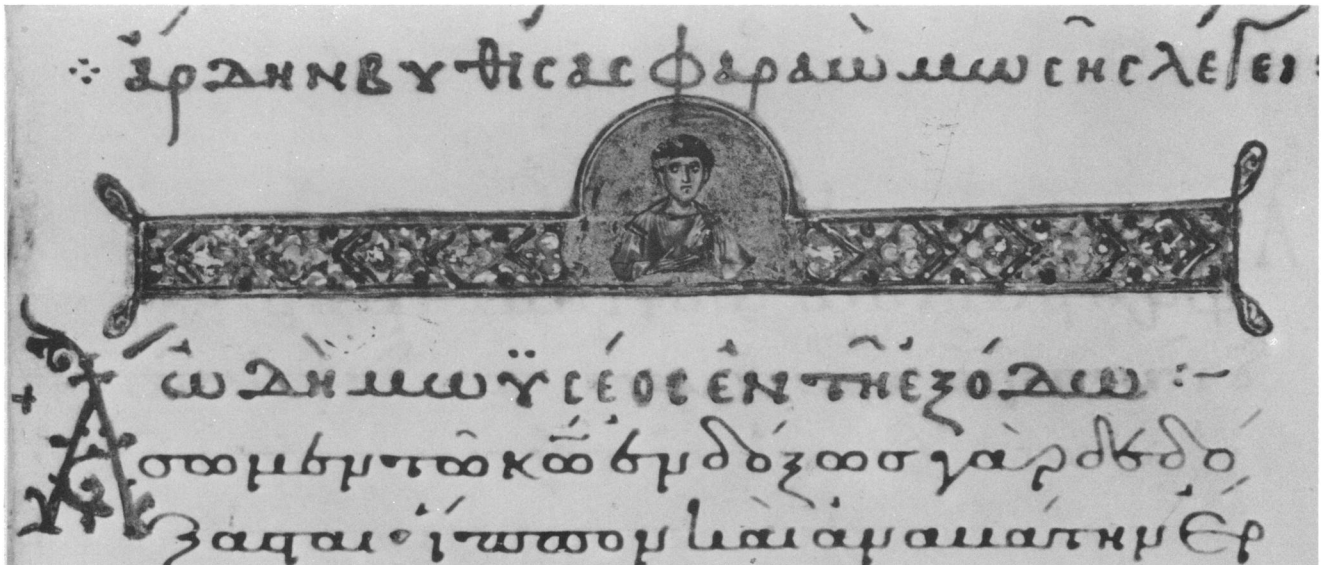 ἄρδην βυθίσας φαραὼ μωσῆς λέγει:
ὠδὴ μωϋσέος ἐν τῆ ἐξόδω :~
Ἄσωμεν τῶ κ̅ω̅ ἐνδόξωσ γὰρ δεδό
ξασται· ἵππον καὶ ἀναβάτην ἔρ